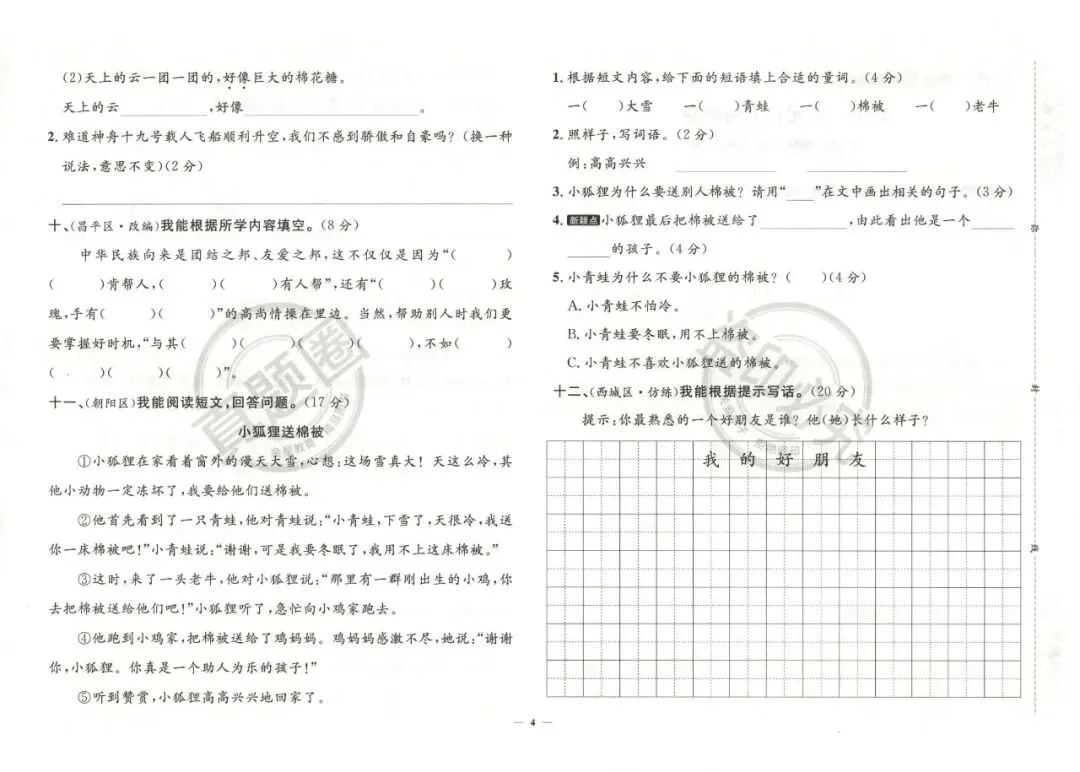 (2)天上的云一团一团的,好像巨大的棉花糖。
天上的云__________,好像____________________。
2. 难道神舟十九号载人飞船顺利升空,我们不感到骄傲和自豪吗?(换一种
说法,意思不变)(2分)
十、(昌平区·改编)我能根据所学内容填空。(8分)
中华民族向来是团结之邦、友爱之邦,这不仅仅是因为“(  )
(  )肯帮人,(  )(  )有人帮”,还有“(  )(  )玫
瑰,手有(  )(  )”的高尚情操在里边。当然,帮助别人时我们更
要掌握好时机,“与其(  )(  )(  )(  ),不如(  )
(  )(  )(  )”。
十一、(朝阳区)我能阅读短文,回答问题。(17分)
小狐狸送棉被
①小狐狸在家看着窗外的漫天大雪,心想:这场雪真大!天这么冷,其
他小动物一定冻坏了,我要给他们送棉被。
②他首先看到了一只青蛙,他对青蛙说:“小青蛙,下雪了,天很冷,我送
你一床棉被吧!”小青蛙说:“谢谢,可是我要冬眠了,我用不上这床棉被。”
③这时,来了一头老牛,他对小狐狸说:“那里有一群刚出生的小鸡,你
去把棉被送给他们吧!”小狐狸听了,急忙向小鸡家跑去。
④他跑到小鸡家,把棉被送给了鸡妈妈。鸡妈妈感激不尽,她说:“谢谢
你,小狐狸。你真是一个助人为乐的孩子!”
⑤听到赞赏,小狐狸高高兴兴地回家了。
1. 根据短文内容,给下面的短语填上合适的量词。(4分)
一(  )大雪 一(  )青蛙 一(  )棉被 一(  )老牛
2. 照样子,写词语。(2分)
例:高高兴兴 __________ __________
3. 小狐狸为什么要送别人棉被?请用“____”在文中画出相关的句子。(3分)
4. 新题点 小狐狸最后把棉被送给了__________,由此看出他是一个_____
_____的孩子。(4分)
5. 小青蛙为什么不要小狐狸的棉被?(  )(4分)
A. 小青蛙不怕冷。
B. 小青蛙要冬眠,用不上棉被。
C. 小青蛙不喜欢小狐狸送的棉被。
十二、(西城区·仿练)我能根据提示写话。(20分)
提示:你最熟悉的一个好朋友是谁?他(她)长什么样子?
我的好朋友
密
封
线
真题圈
金星教育
盗印必究
— 4 —